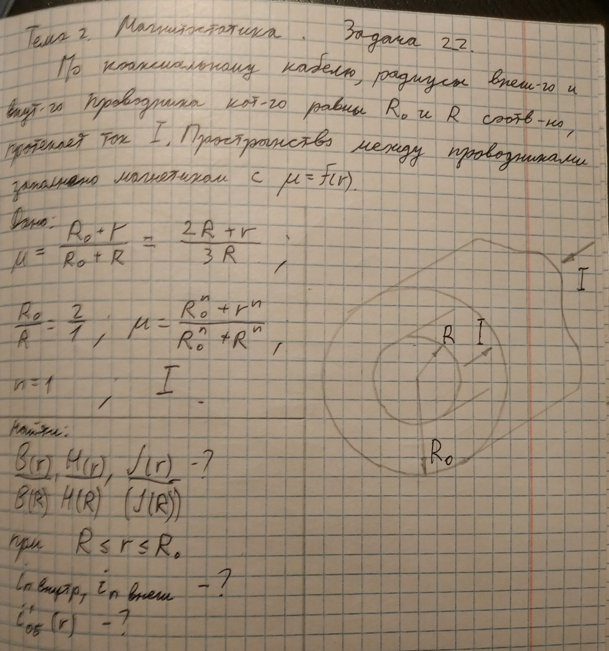 Тема 2. Магнитостатика. Задача 22.
По коаксиальному кабелю, радиусы внеш-го и
внут-го проводника кот-го равны R₀ и R соотв-но,
протекает ток I. Пространство между проводниками
заполнено магнетиком с μ = f(r).
Дано:
μ = (R₀ + r)/(R₀ + R) = (2R + r)/(3R) ;
R₀/R = 2/1 ; μ = (R₀ⁿ + rⁿ)/(R₀ⁿ + Rⁿ) ;
n = 1 ; I .
Найти:
B(r)/B(R), H(r)/H(R), J(r)/(J(R)) - ?
при R ≤ r ≤ R₀
iп внутр, iп внеш - ?
i'об (r) - ?
I
R I
R₀